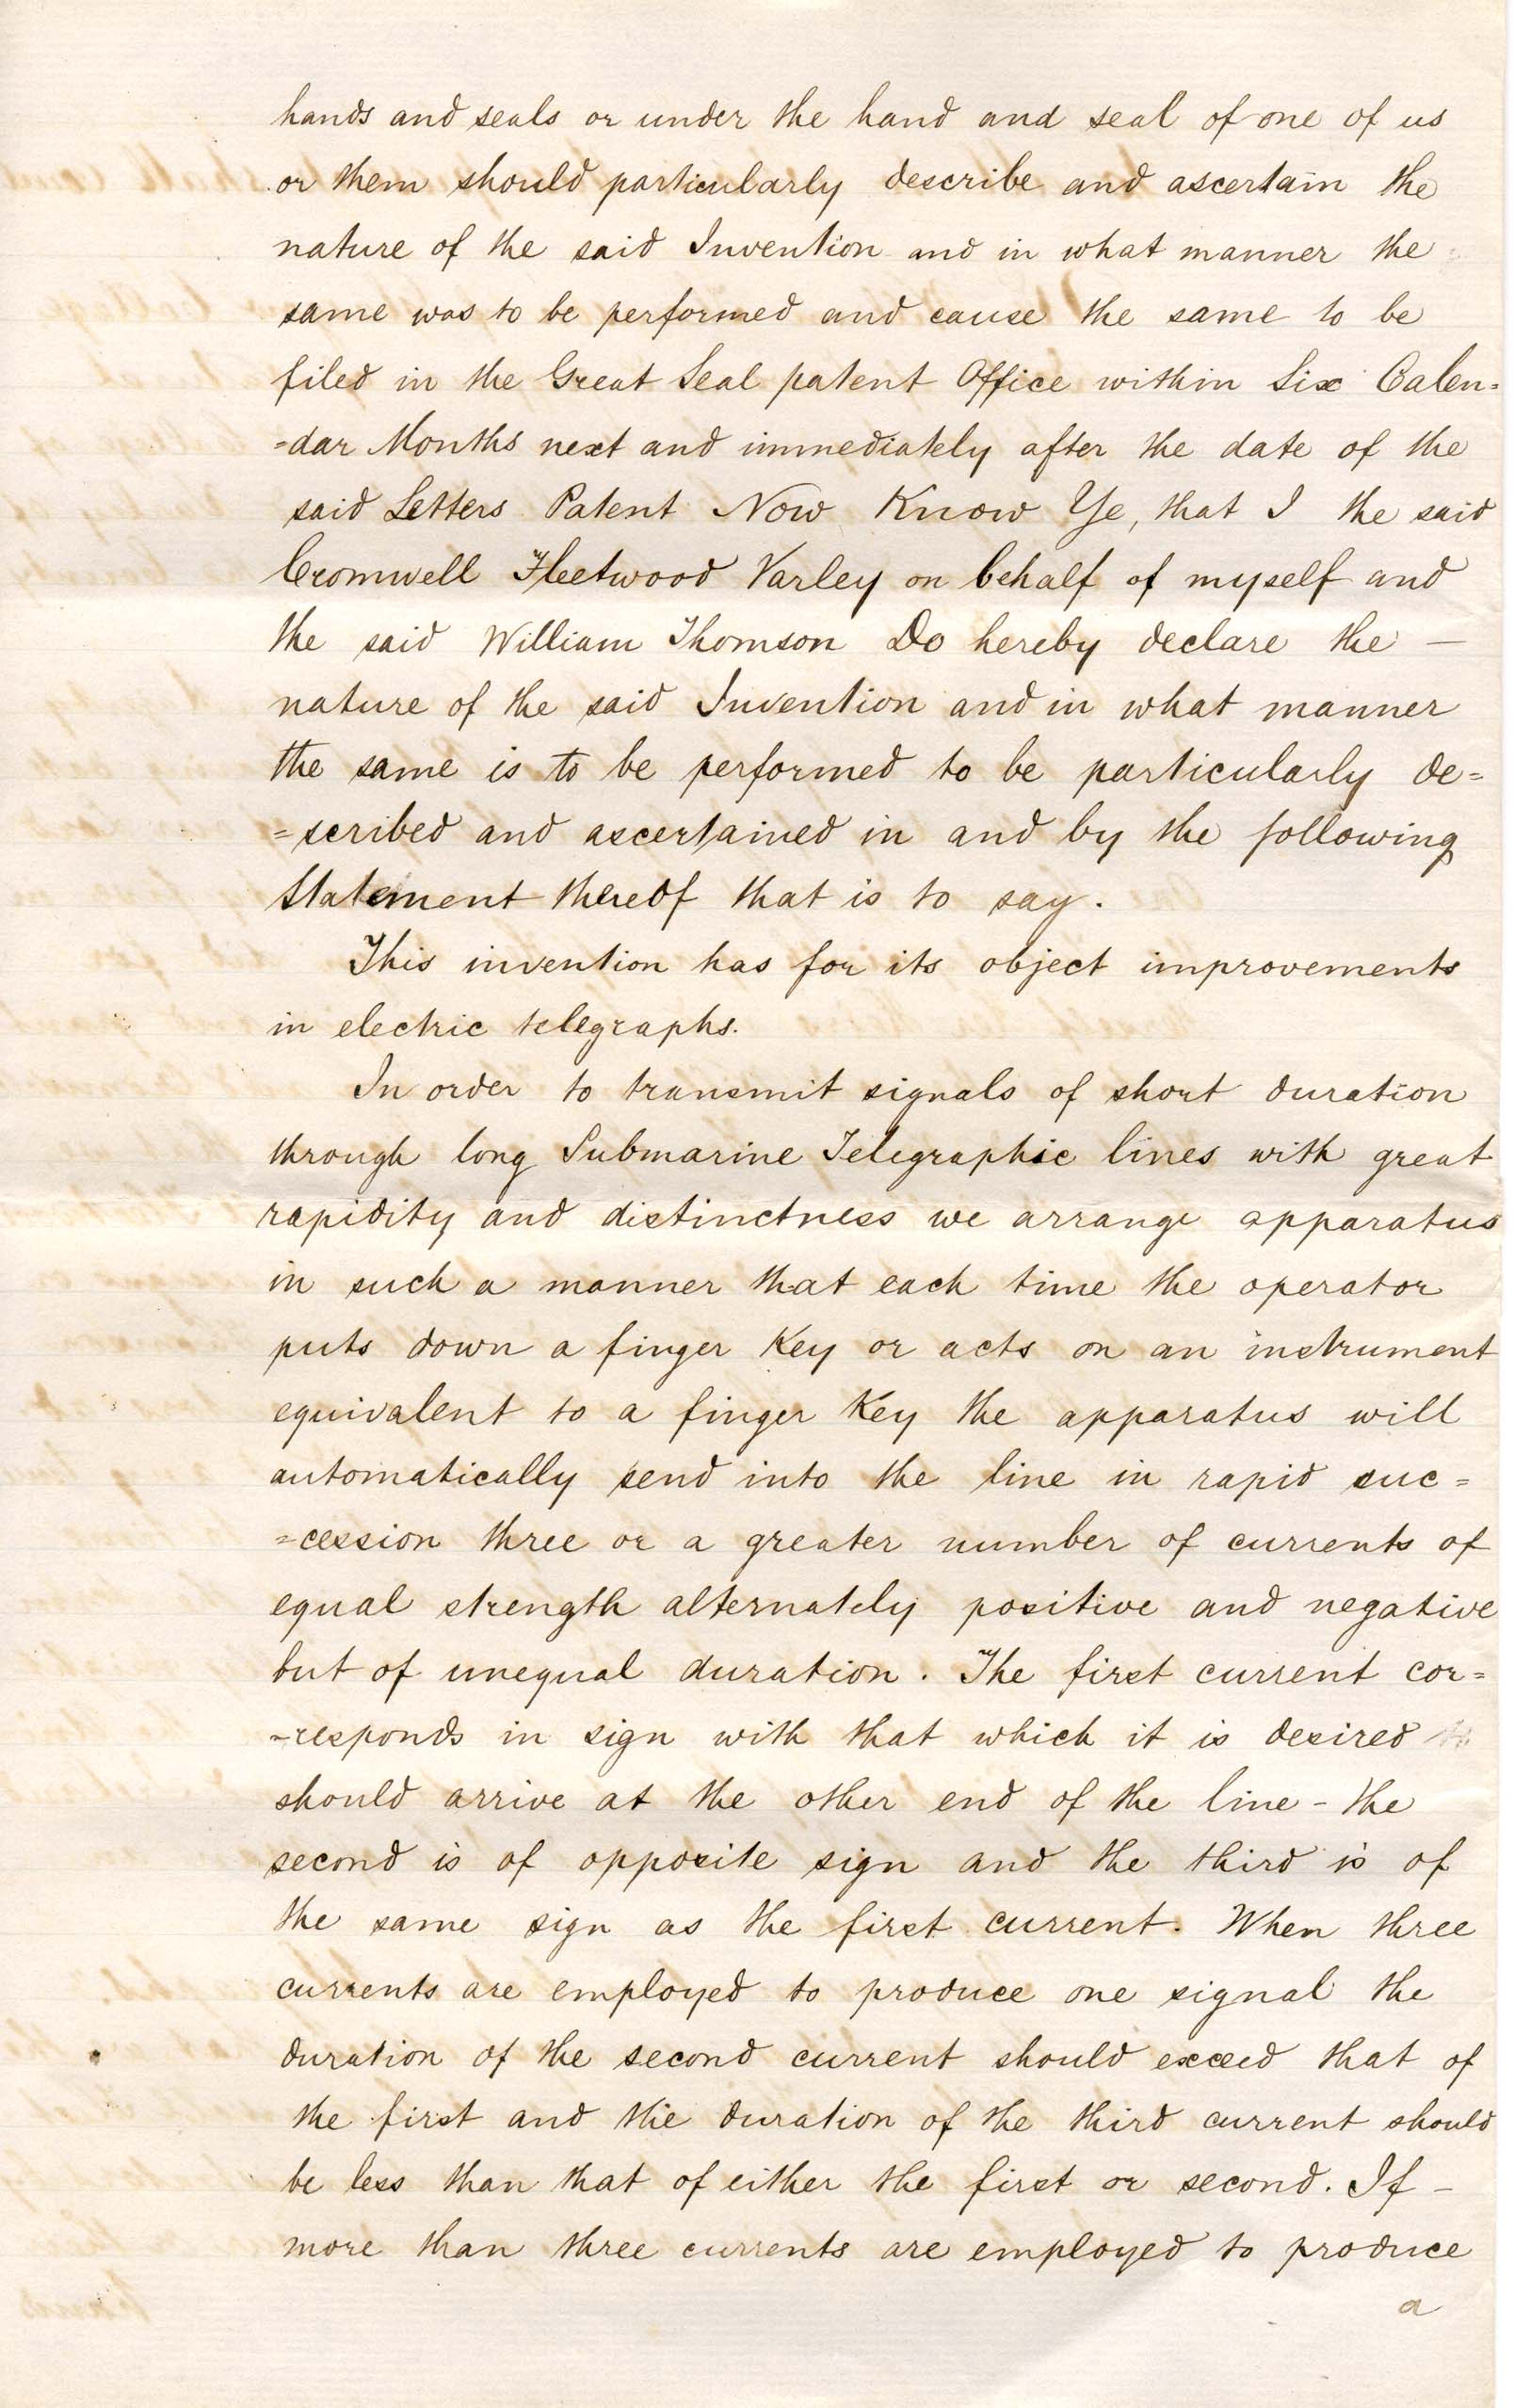 hands and seals or under the hand and seal of one of us
or them should particularly describe and ascertain the
nature of the said Invention and in what manner the
same was to be performed and cause the same to be
filed in the Great Seal patent Office within Six Calen=
=dar Months next and immediately after the date of the
said Letters Patent Now Know Ye, that I the said
Cromwell Fleetwood Varley on behalf of myself and
the said William Thomson Do hereby declare the —
nature of the said Invention and in what manner
the same is to be performed to be particularly de=
=scribed and ascertained in and by the following
Statement thereof that is to say.
This invention has for its object improvements
in electric telegraphs.
In order to transmit signals of short duration
through long Submarine Telegraphic lines with great
rapidity and distinctness we arrange apparatus
in such a manner that each time the operator
puts down a finger Key or acts on an instrument
equivalent to a finger Key the apparatus will
automatically send into the line in rapid suc=
=cession three or a greater number of currents of
equal strength alternately positive and negative
but of unequal duration. The first current cor=
=responds in sign with that which it is desired
should arrive at the other end of the line - the
second is of opposite sign and the third is of
the same sign as the first current. When three
currents are employed to produce one signal the
duration of the second current should exceed that of
the first and the duration of the third current should
be less than that of either the first or second. If —
more than three currents are employed to produce
a